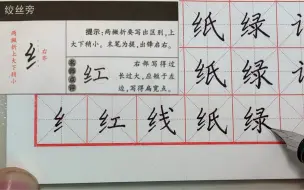 绞丝旁
提示:两撇折要写出区别,上
大下稍小,末笔为提,出锋启右。
纟
右齐
两撇折
上大下稍小
红
右部写得过
长过大,应低于左
边,写得扁宽点。
纸 绿
纟 红 线 纸 绿